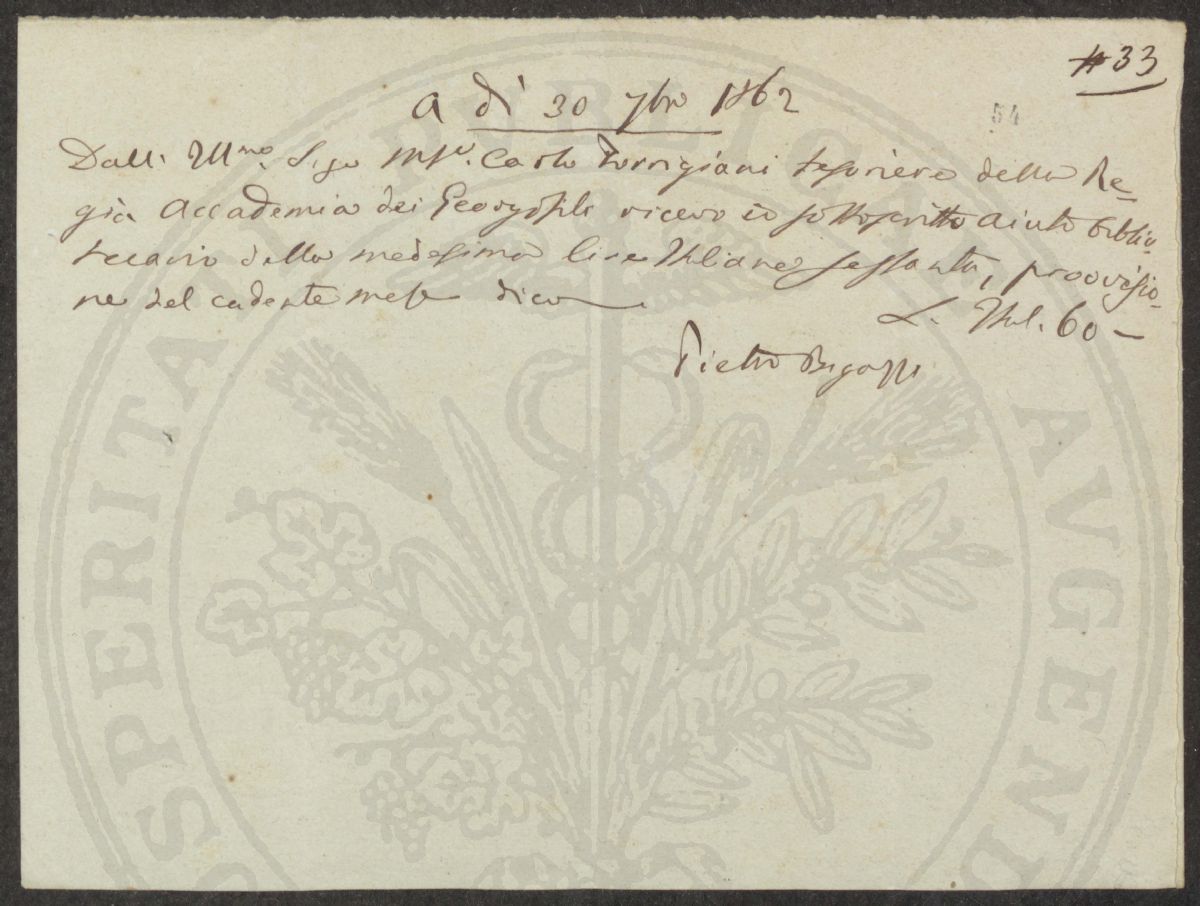 # 33
54
A dì 30 7bre 1862
Dall' Illmo. Sigr Mse. Carlo Torrigiani tesoriere della Re-
gia Accademia dei Georgofili ricevo io sottoscritto aiuto biblio-
tecario della medesima lire Italiane sessanta, provvisio-
ne del cadente mese dico
L. Ital. 60 –
Pietro Bigazzi
PROSPERITATI PUBLICAE AUGENDAE